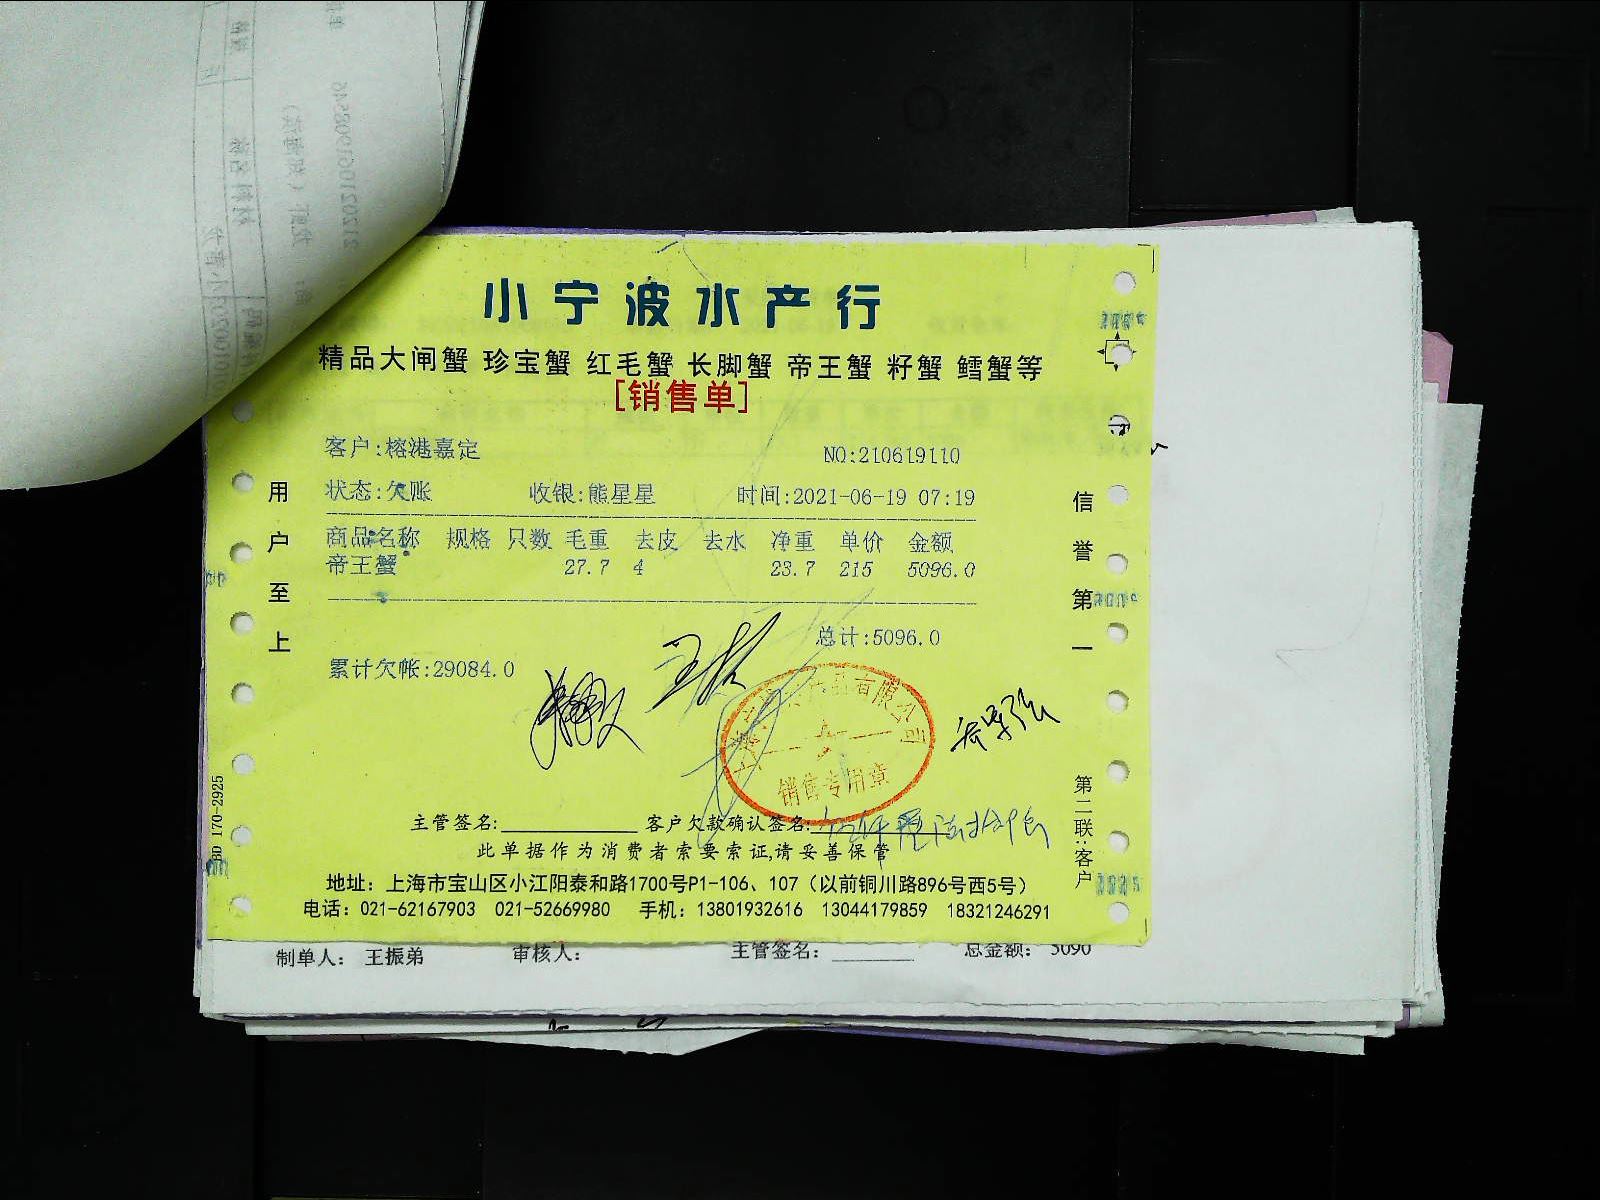 小宁波水产行
精品大闸蟹 珍宝蟹 红毛蟹 长脚蟹 帝王蟹 籽蟹 鳕蟹等
[销售单]
客户:榕港嘉定 NO:210619110
状态:欠账 收银:熊星星 时间:2021-06-19 07:19
商品名称 规格 只数 毛重 去皮 去水 净重 单价 金额
帝王蟹 27.7 4 23.7 215 5096.0
总计:5096.0
累计欠帐:29084.0
用户至上
信誉第一
有限公司
销售专用章
主管签名: 客户欠款确认签名:
此单据作为消费者索要索证,请妥善保管
地址：上海市宝山区小江阳泰和路1700号P1-106、107（以前铜川路896号西5号）
电话：021-62167903 021-52669980 手机：13801932616 13044179859 18321246291
第二联:客户
BD 170-2925
制单人： 王振弟 审核人： 主管签名： 总金额： 5090